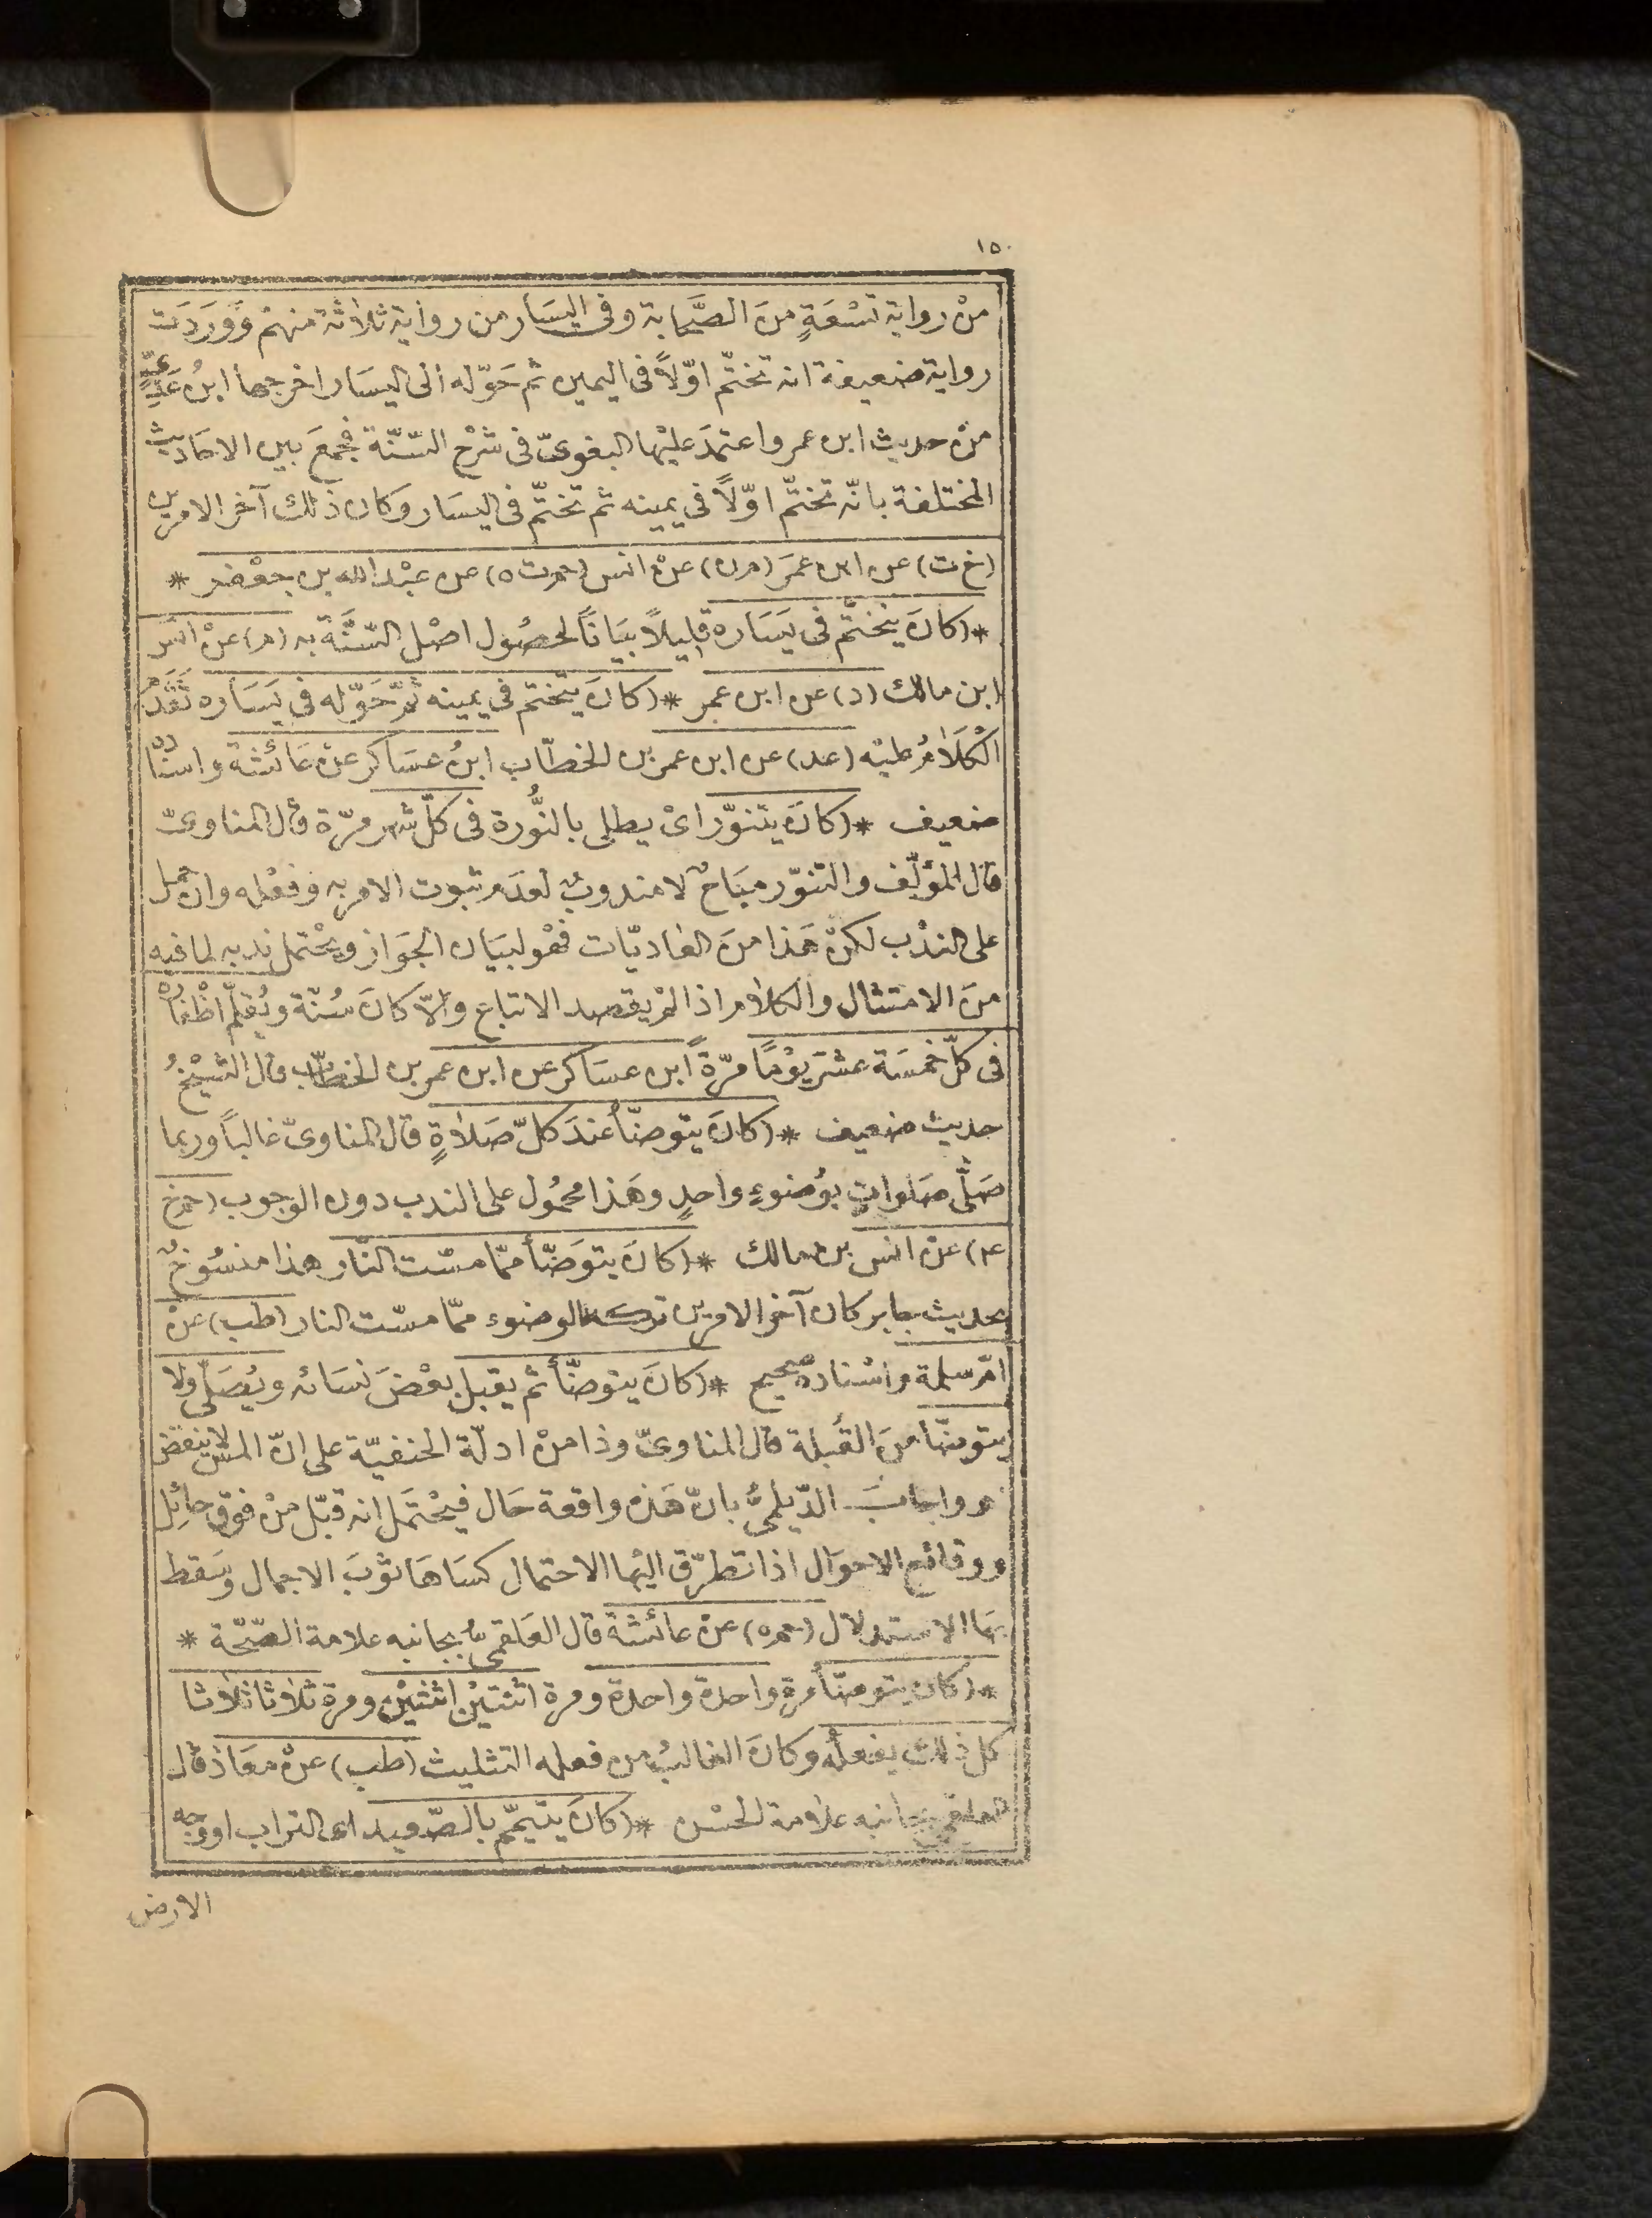 ١٥٠
منْ رواية تسْعَةٍ منَ الصَّحَابة وفى اليسَار من رواية ثلاثة منهمْ وَوَرَدَت
رواية ضعيفة انه تختّم اوّلاً فى اليمين ثم حَوّله الى اليسَار اخرجها ابنُ عَدِىٍّ
منْ حديث ابن عمر واعتمدَ عليْها البغوىّ فى شرْح السّنّة فجمعَ بين الاحَاديث
المختلفة بانّه تختّم اوّلاً فى يمينه ثم تختّم فى اليسَار وَكان ذلك آخر الامرين
(خ ت) عن ابن عمَر (م ن) عنْ انس (حم ت ه) عن عبْد الله بن جعْفر *
*(كانَ يتختّم فى يَسَاره قليلاً بيَاناً لحصُول اصْل السّنَّة به (م) عنْ انَس
ابن مالك (د) عن ابن عمر *(كانَ يتختم فى يمينه ثمّ حَوّله فى يَسَاره تَقَدّمَ
الْكَلَامُ عليْه (عد) عن ابن عمر بن الخطّاب ابنُ عسَاكر عنْ عَائشة واسْنَاده
ضعيف *(كانَ يتنوّر اىْ يطلى بالنُّورة فى كلّ شهر مرّة قال المناوىّ
قال المؤلّف والتنوّر مبَاحٌ لا مندوبٌ لعدَم ثبوت الامر به وفعْله وان حمل
على الندْب لكنْ هَذا منَ العَاديّات فهْو لبيَان الجَواز ويحْتمل ندبه لما فيه
منَ الامتثال والكلام اذا لمْ يقصد الاتباع والاّ كانَ سُنّة ويُقلّم اظْفاره
فى كلّ خمسَة عشرَ يوْمًا مرّةً ابن عسَاكر عن ابن عمر بن الخطّاب قال الشيْخُ
حديث ضعيف *(كانَ يتوضّأ عندَ كلّ صَلاةٍ قال المناوىّ غالباً وربما
صَلَّى صَلواتٍ بوُضوءٍ واحدٍ وهَذا محمُول على الندب دون الوجوب (حم خ
ع) عنْ انس بن مالك *(كانَ يتوَضّأ ممّا مسّت النّار هذا منسُوخٌ
بحديث جابر كان آخر الامرين تركه الوضوء ممّا مسّت النار (طب) عنْ
امّ سلمة واسْناده صحيح *(كانَ يتوضّأ ثم يقبل بعْضَ نسَائه ويُصَلّى ولا
يتوضّأ منَ القُبلة قال المناوىّ وذا منْ ادلّة الحنفيّة على انّ المسّ لا ينقض
واجابَ الدّيلمىُّ بانّ هَذه واقعة حَال فيحْتمَل انه قبّل منْ فوق حائِل
ووقائع الاحوَال اذا تطرّق اليْها الاحتمال كسَاهَا ثوبَ الاجمال وسَقط
بهَا الاستدلال (حم ه) عنْ عائشة قال العَلقمىُّ بجانبه علامة الصّحّة *
*(كان يتوضّأ مرة واحدة واحدة ومرة اثنتيْن اثنتيْن ومرة ثلاثا ثلاثا
كل ذلك يفعلُه وكانَ الغالبُ من فعله التثليث (طب) عنْ معَاذ قال
العلقمى بجانبه علامة الحسْن *(كانَ يتيمّم بالصّعيد اى التراب او وجه
الارض